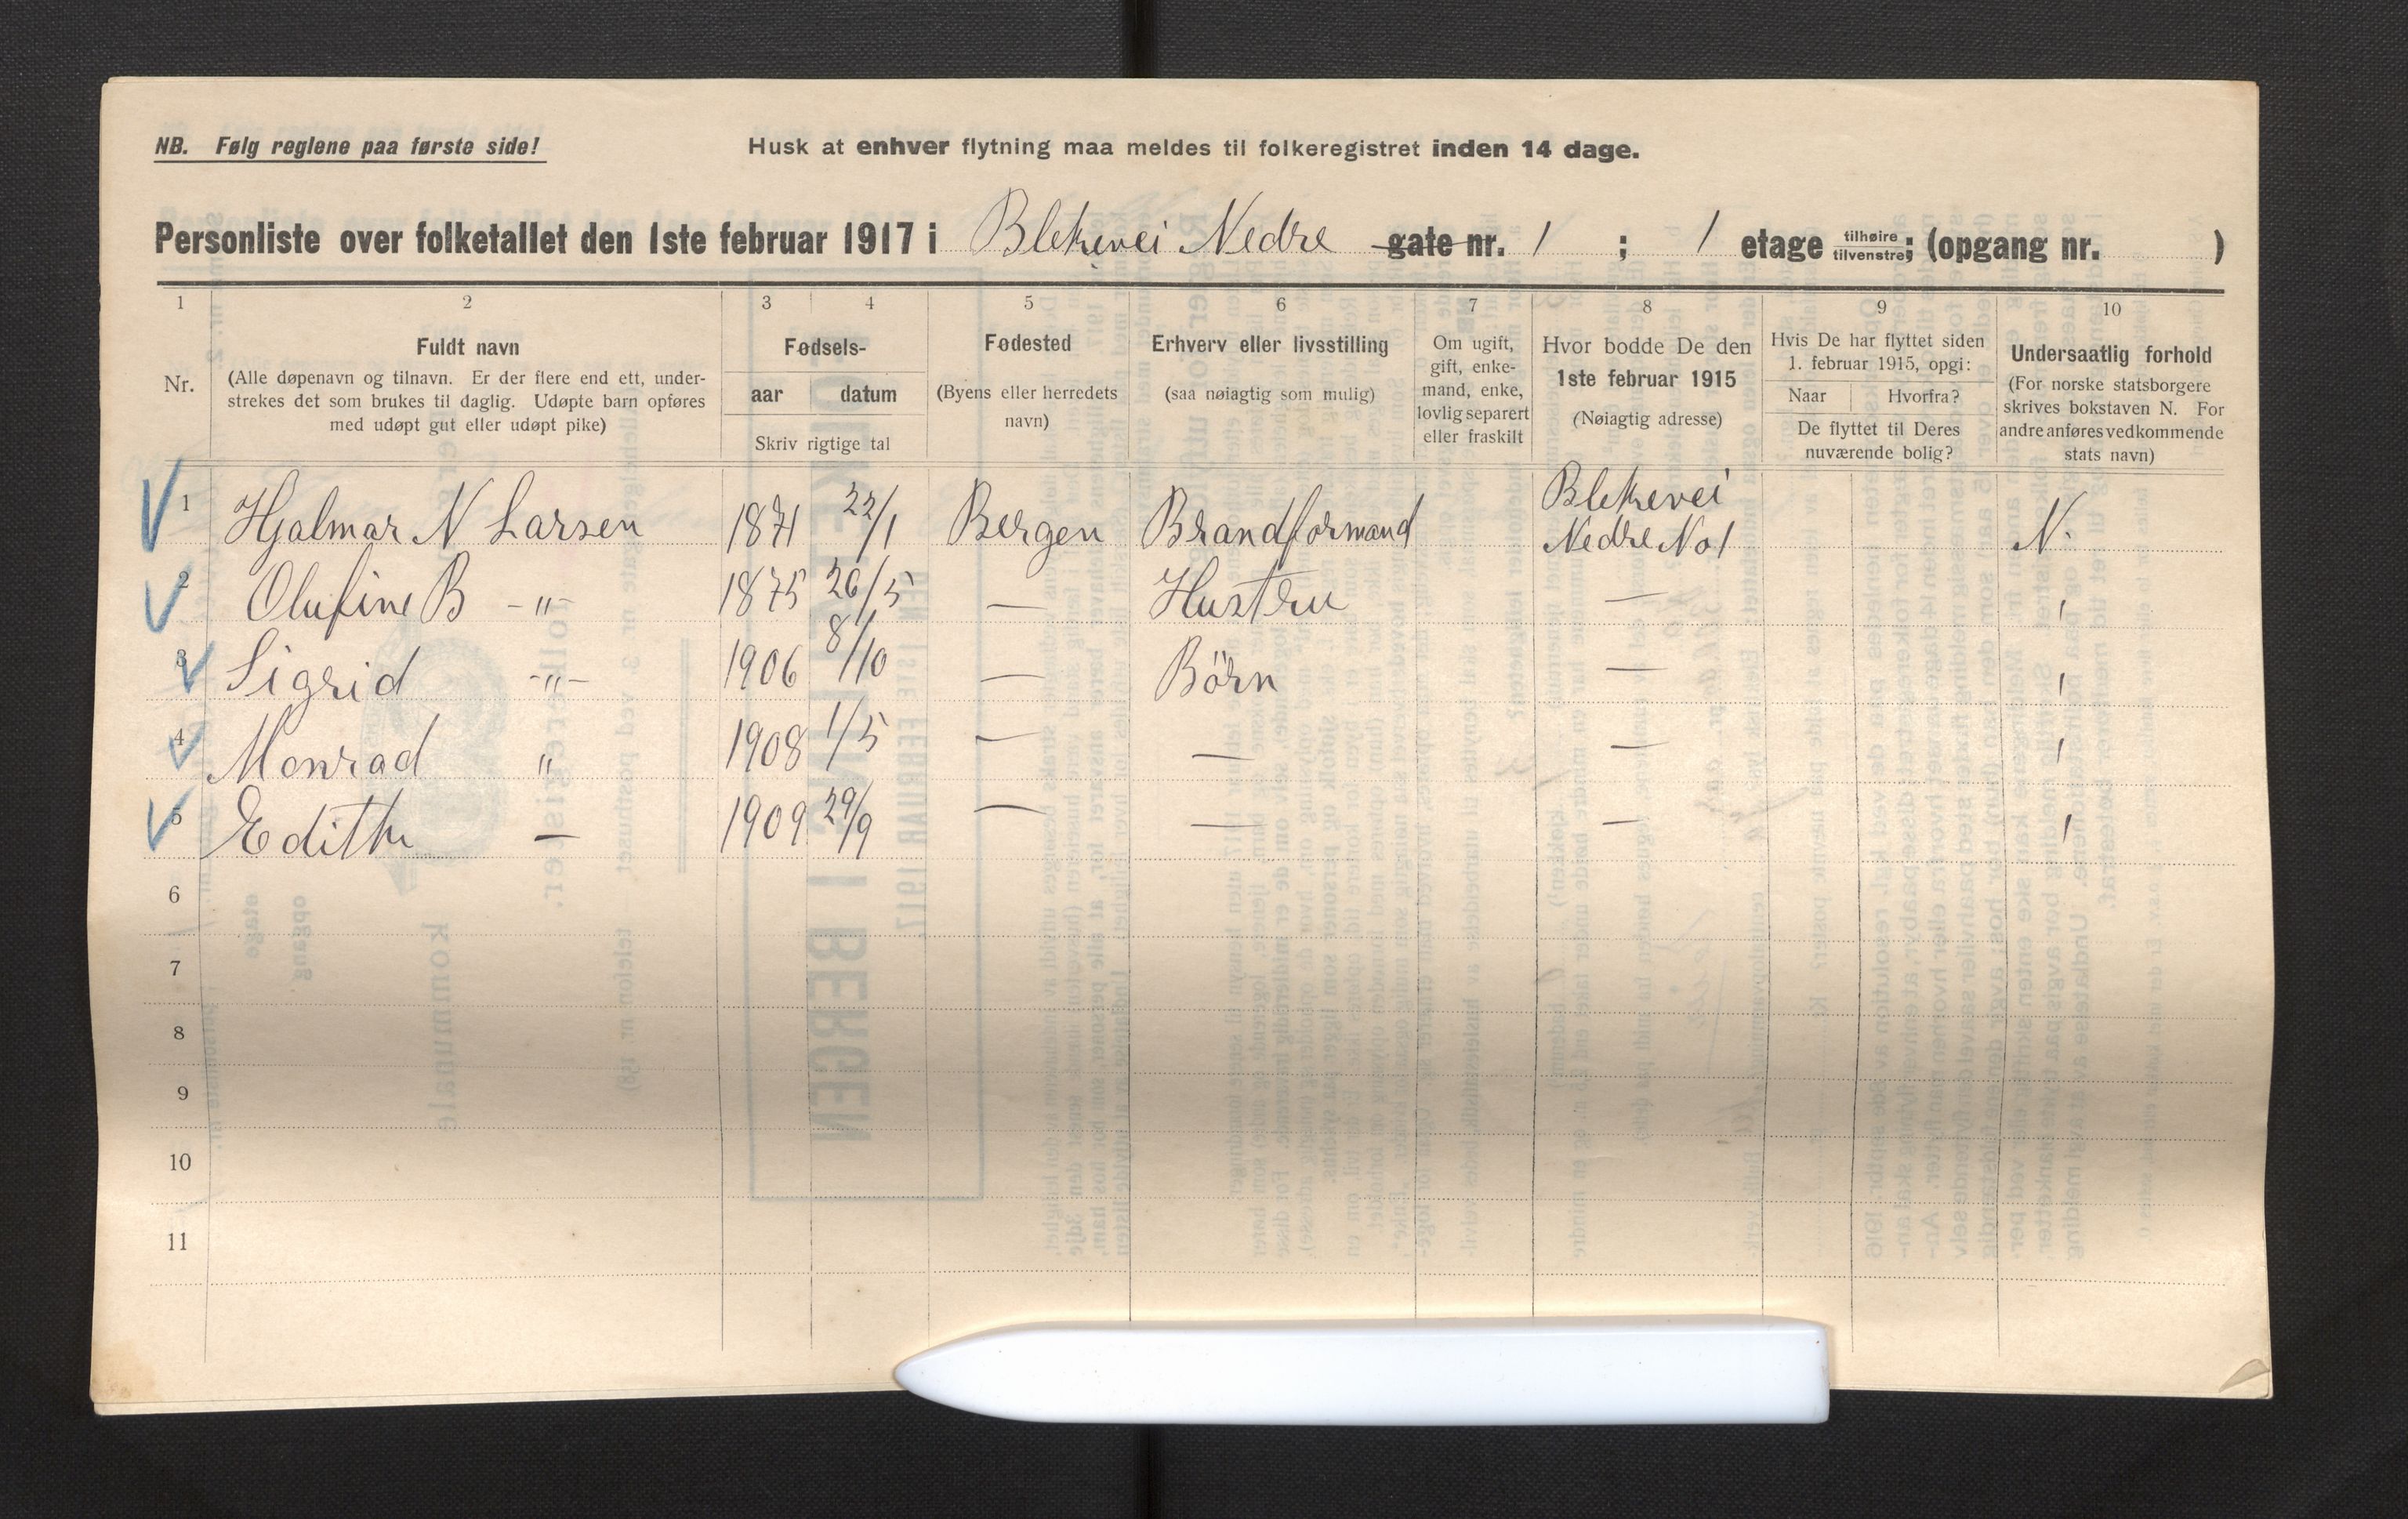 NB. Følg reglene paa første side!
Husk at enhver flytning maa meldes til folkeregistret inden 14 dage.
Personliste over folketallet den 1ste februar 1917 i Blekevei Nedre gate nr. 1 ; 1 etage tilhøire tilvenstre; (opgang nr. )
1 2 3 4 5 6 7 8 9 10
Nr.
Fuldt navn
(Alle døpenavn og tilnavn. Er der flere end ett, under-
strekes det som brukes til daglig. Udøpte barn opføres
med udøpt gut eller udøpt pike)
Fødsels-
aar datum
Skriv rigtige tal
Fødested
(Byens eller herredets
navn)
Erhverv eller livsstilling
(saa nøiagtig som mulig)
Om ugift,
gift, enke-
mand, enke,
lovlig separert
eller fraskilt
Hvor bodde De den
1ste februar 1915
(Nøiagtig adresse)
Hvis De har flyttet siden
1. februar 1915, opgi:
Naar Hvorfra?
De flyttet til Deres
nuværende bolig?
Undersaatlig forhold
(For norske statsborgere
skrives bokstaven N. For
andre anføres vedkommende
stats navn)
1 Hjalmar N Larsen 1871 22/1 Bergen Brandformand Blekevei Nedre No1 N.
2 Olufine B -"- 1875 26/5 — Hustru — "
3 Sigrid -"- 1906 8/10 — Børn — "
4 Monrad " 1908 1/5 — — — "
5 Edith — 1909 29/9 — — — "
6
7
8
9
10
11